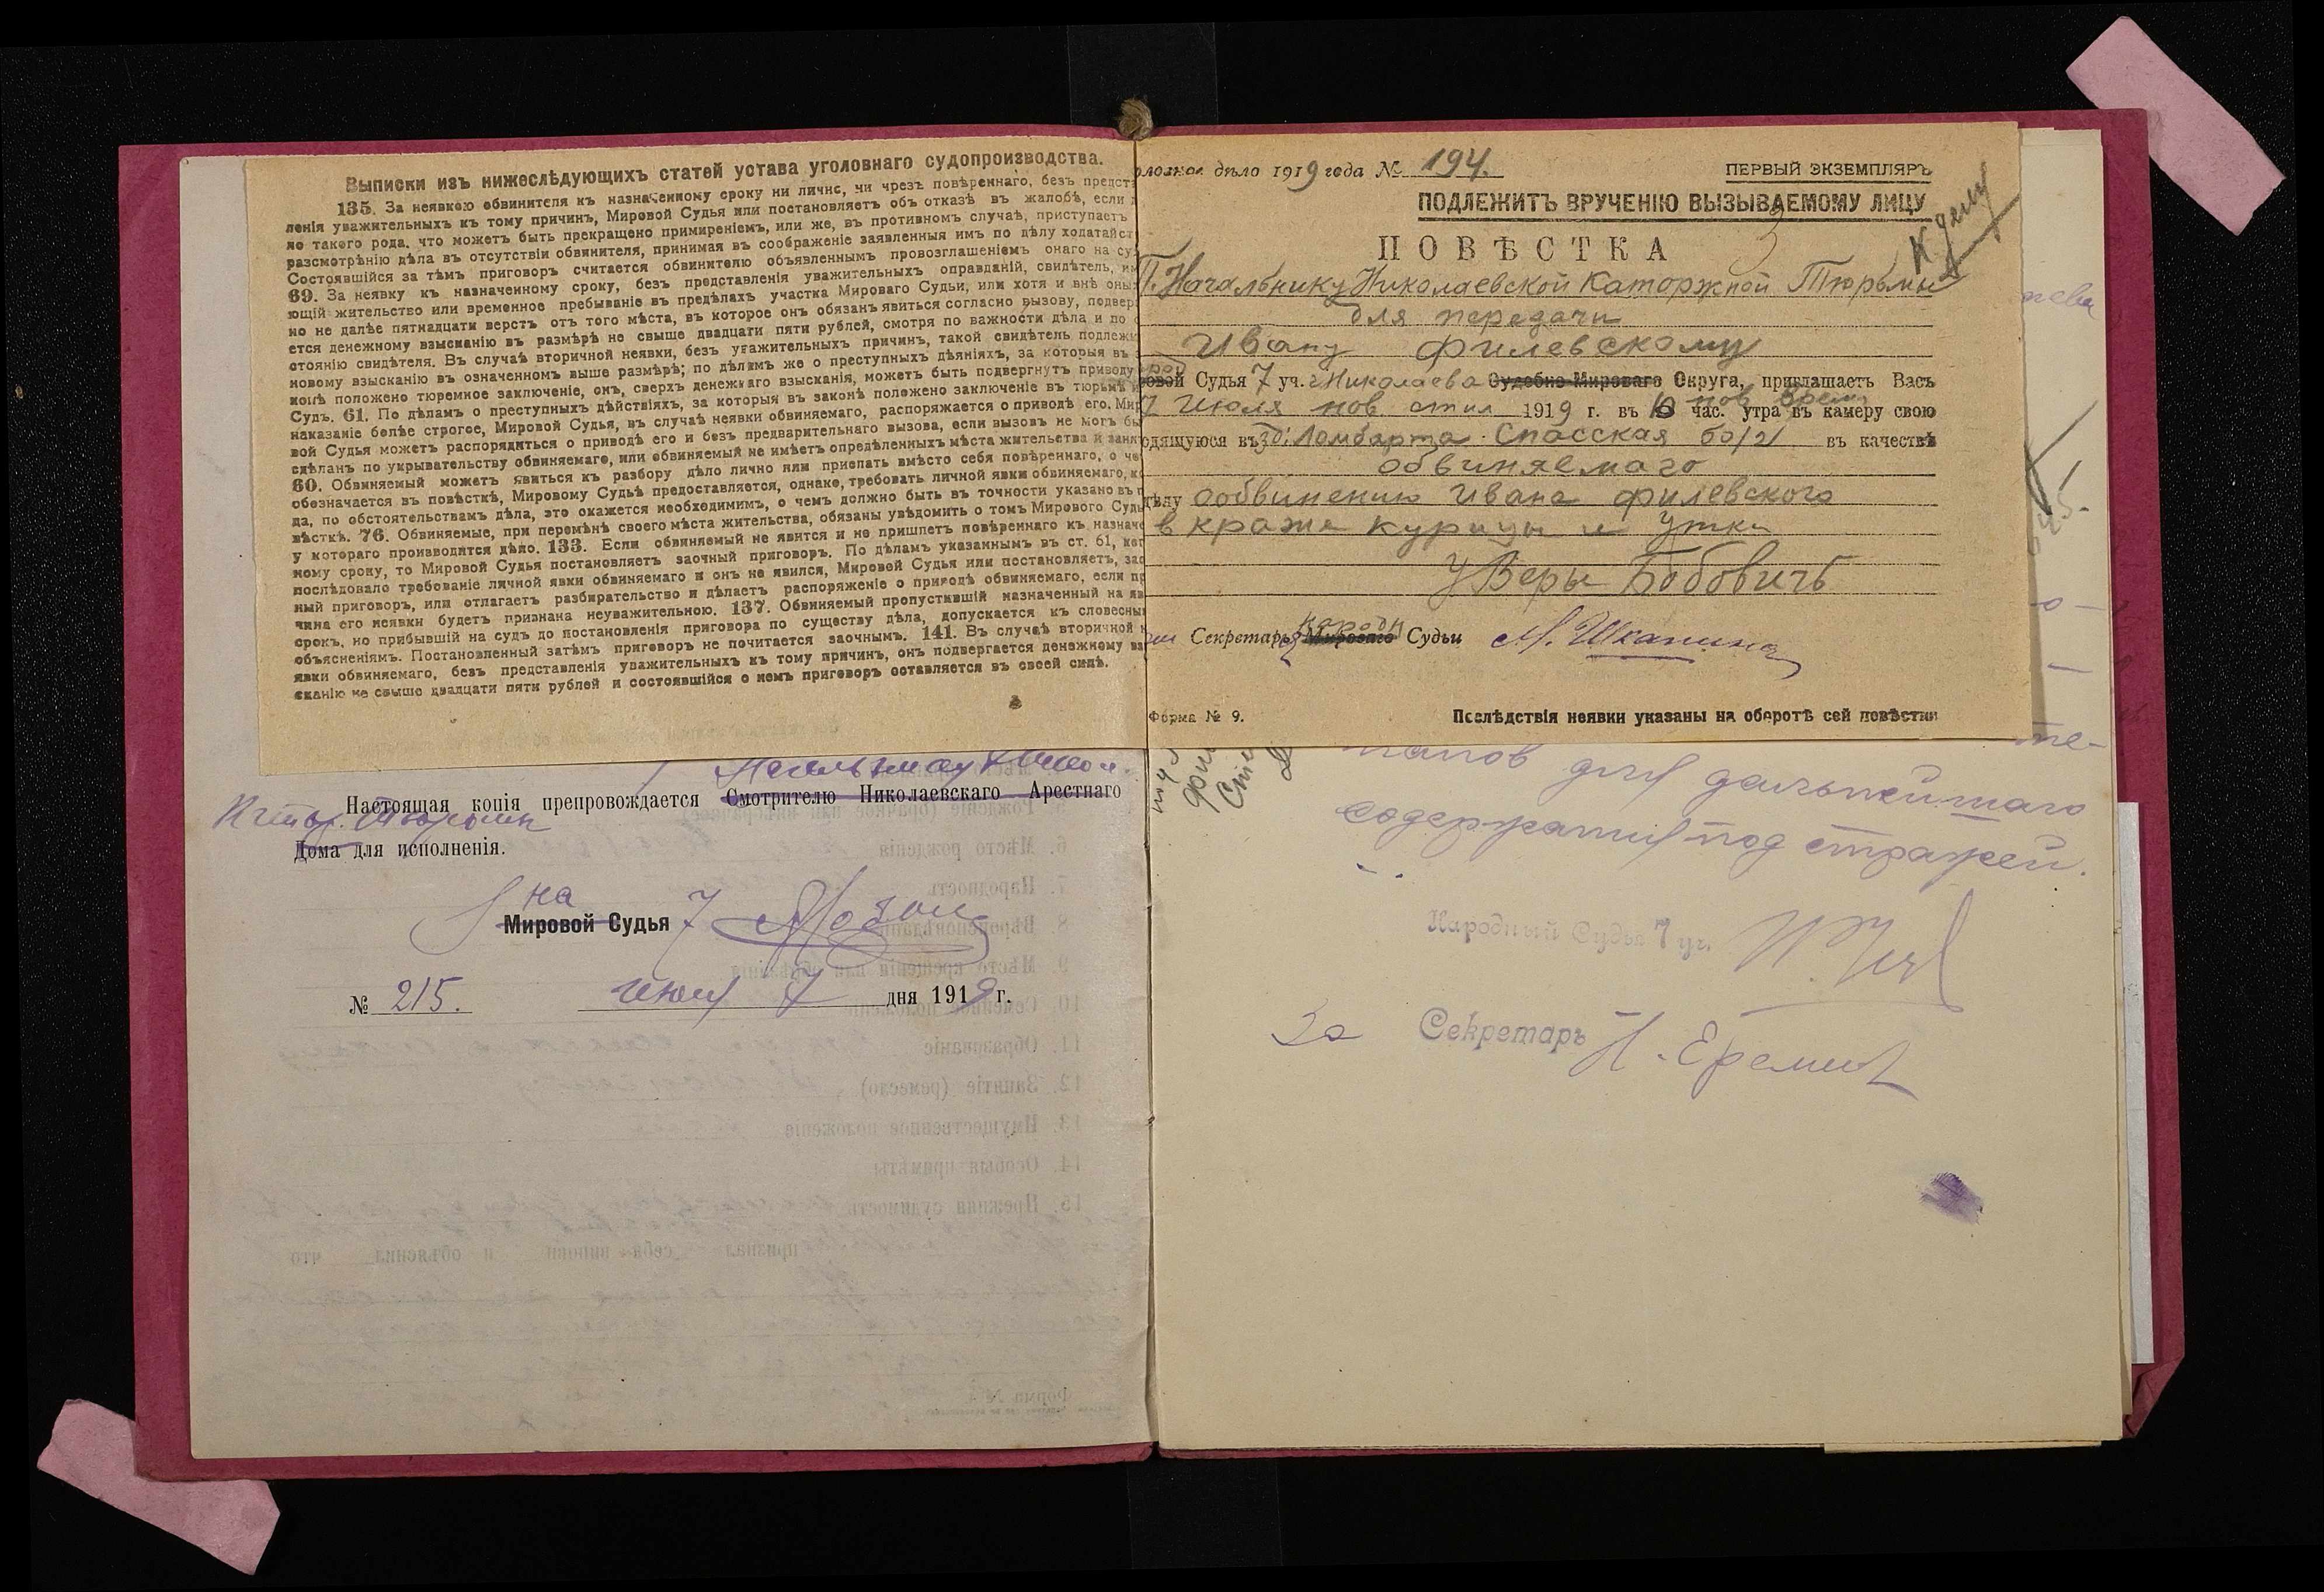 Выписки изъ нижеслѣдующихъ статей устава уголовнаго судопроизводства.
135. За неявкою обвинителя къ назначенному сроку ни лично, ни чрезъ повѣреннаго, безъ предста
ленія уважительныхъ къ тому причинъ, Мировой Судья или постановляетъ объ отказѣ въ жалобѣ, если
ло такого рода, что можетъ быть прекращено примиреніемъ, или же, въ противномъ случаѣ, приступаетъ
разсмотрѣнію дѣла въ отсутствіи обвинителя, принимая въ соображеніе заявленныя имъ по дѣлу ходатайст
Состоявшійся за тѣмъ приговоръ считается обвинителю объявленнымъ провозглашеніемъ онаго на су
69. За неявку къ назначенному сроку, безъ представленія уважительныхъ оправданій, свидѣтель, им
ющій жительство или временное пребываніе въ предѣлахъ участка Мироваго Судьи, или хотя и внѣ оныхъ
но не далѣе пятнадцати верстъ отъ того мѣста, въ которое онъ обязанъ явиться согласно вызову, подвер
ется денежному взысканію въ размѣрѣ не свыше двадцати пяти рублей, смотря по важности дѣла и по с
стоянію свидѣтеля. Въ случаѣ вторичной неявки, безъ уважительныхъ причинъ, такой свидѣтель подлежи
новому взысканію въ означенномъ выше размѣрѣ; по дѣламъ же о преступныхъ дѣяніяхъ, за которыя въ з
конѣ положено тюремное заключеніе, онъ, сверхъ денежнаго взысканія, можетъ быть подвергнутъ приводу
Судъ. 61. По дѣламъ о преступныхъ дѣйствіяхъ, за которыя въ законѣ положено заключеніе въ тюрьмѣ и
наказаніе болѣе строгое, Мировой Судья, въ случаѣ неявки обвиняемаго, распоряжается о приводѣ его. Мир
вой Судья можетъ распорядиться о приводѣ его и безъ предварительнаго вызова, если вызовъ не могъ бы
сдѣланъ по укрывательству обвиняемаго, или обвиняемый не имѣетъ опредѣленныхъ мѣста жительства и занят
60. Обвиняемый можетъ явиться къ разбору дѣло лично или прислать вмѣсто себя повѣреннаго, о че
обозначается въ повѣсткѣ, Мировому Судьѣ предоставляется, однако, требовать личной явки обвиняемаго, ко
да, по обстоятельствамъ дѣла, это окажется необходимимъ, о чемъ должно быть въ точности указано въ п
вѣсткѣ. 76. Обвиняемые, при перемѣнѣ своего мѣста жительства, обязаны увѣдомить о томъ Мирового Судь
у котораго производится дѣло. 133. Если обвиняемый не явится и не пришлетъ повѣреннаго къ назначе
ному сроку, то Мировой Судья постановляетъ заочный приговоръ. По дѣламъ указаннымъ въ ст. 61, ког
послѣдовало требованіе личной явки обвиняемаго и онъ не явился, Мировой Судья или постановляетъ, зао
ный приговоръ, или отлагаетъ разбирательство и дѣлаетъ распоряженіе о приводѣ обвиняемаго, если пр
чина его неявки будетъ признана неуважительною. 137. Обвиняемый пропустившій назначенный на яв
срокъ, но прибывшій на судъ до постановленія приговора по существу дѣла, допускается къ словесны
объясненіямъ. Постановленный затѣмъ приговоръ не почитается заочнымъ. 141. Въ случаѣ вторичной н
явки обвиняемаго, безъ представленія уважительныхъ къ тому причинъ, онъ подвергается денежному вз
сканію не свыше двадцати пяти рублей и состоявшійся о немъ приговоръ оставляется въ своей силѣ.
Настоящая копія препровождается Смотрителю Николаевскаго Арестнаго
Дома для исполненія.
на
Мировой Судья 7
№ 215. июня 7 дня 1919 г.
дѣло 1919 года № 194.
ПЕРВЫЙ ЭКЗЕМПЛЯРЪ
ПОДЛЕЖИТЪ ВРУЧЕНІЮ ВЫЗЫВАЕМОМУ ЛИЦУ
К делу
ПОВѢСТКА
3
Г. Начальнику Николаевской Каторжной Тюрьмы
для передачи
Ивану Филевскому
овой Судья 7 уч. г Николаева Судебно-Мироваго Округа, приглашаетъ Васъ
Июля нов стил 1919 г. въ 10 час. утра нов время въ камеру свою
одящуюся въ зд. Ломбарта Спасская 60/21 въ качествѣ
обвиняемаго
дѣлу о обвинению Ивана Филевского
в краже курицы и утки
у Веры Бобовичъ
Секретарь Мироваго народн Судьи М. Шканина
Форма № 9.
Послѣдствія неявки указаны на оборотѣ сей повѣстки
для дальнейшаго
содержания под стражей.
Народный Судья 7 уч.
За Секретарь Н. Еремин